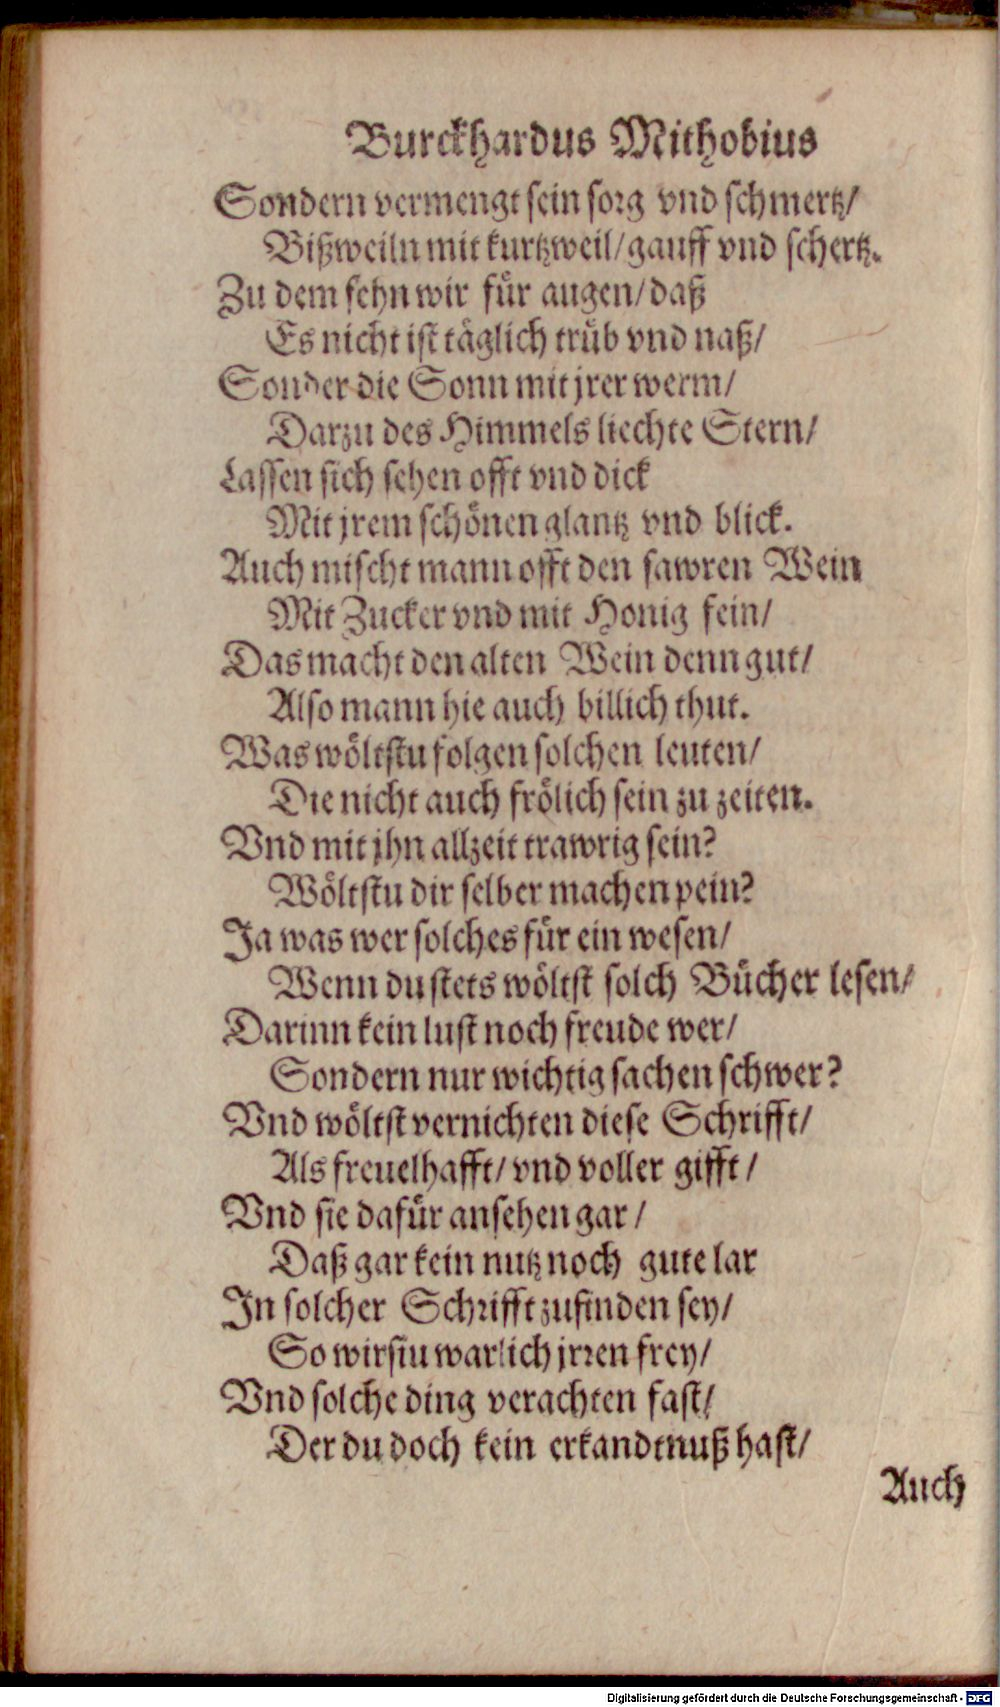 Burckhardus Mithobius
Sondern vermengt sein sorg vnd schmertz/
Bißweiln mit kurtzweil/gauff vnd schertz.
Zu dem sehn wir für augen/daß
Es nicht ist täglich trüb vnd naß/
Sonder die Sonn mit jrer werm/
Darzu des Himmels liechte Stern/
Lassen sich sehen offt vnd dick
Mit jrem schönen glantz vnd blick.
Auch mischt mann offt den sawren Wein
Mit Zucker vnd mit Honig fein/
Das macht den alten Wein denn gut/
Also mann hie auch billich thut.
Was wöltstu folgen solchen leuten/
Die nicht auch frölich sein zu zeiten.
Vnd mit jhn allzeit trawrig sein?
Wöltstu dir selber machen pein?
Ja was wer solches für ein wesen/
Wenn du stets wöltst solch Bücher lesen/
Darinn kein lust noch freude wer/
Sondern nur wichtig sachen schwer?
Vnd wöltst vernichten diese Schrifft/
Als freuelhafft/ vnd voller gifft/
Vnd sie dafür ansehen gar/
Daß gar kein nutz noch gute lar
In solcher Schrifft zufinden sey/
So wirstu warlich jrren frey/
Vnd solche ding verachten fast/
Der du doch kein erkandtnuß hast/
Auch
Digitalisierung gefördert durch die Deutsche Forschungsgemeinschaft - DFG